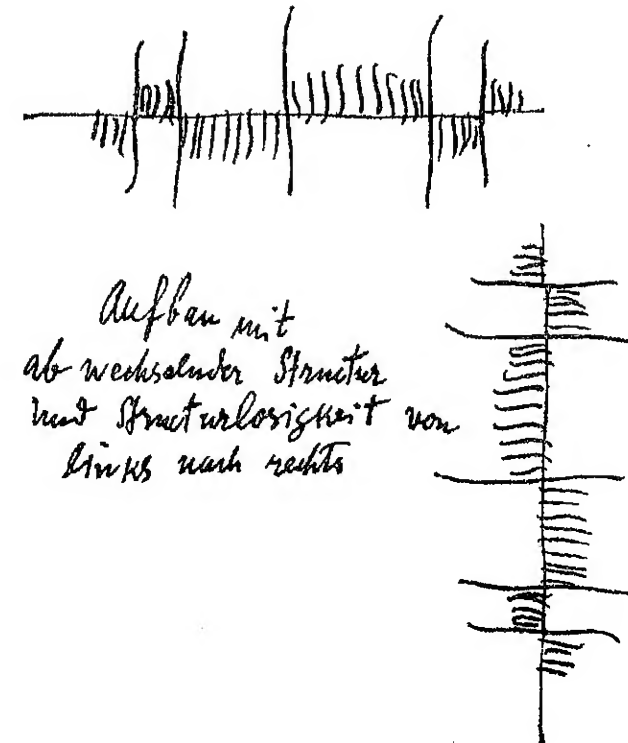 Aufbau mit
abwechselnder Structur
und Structurlosigkeit von
links nach rechts